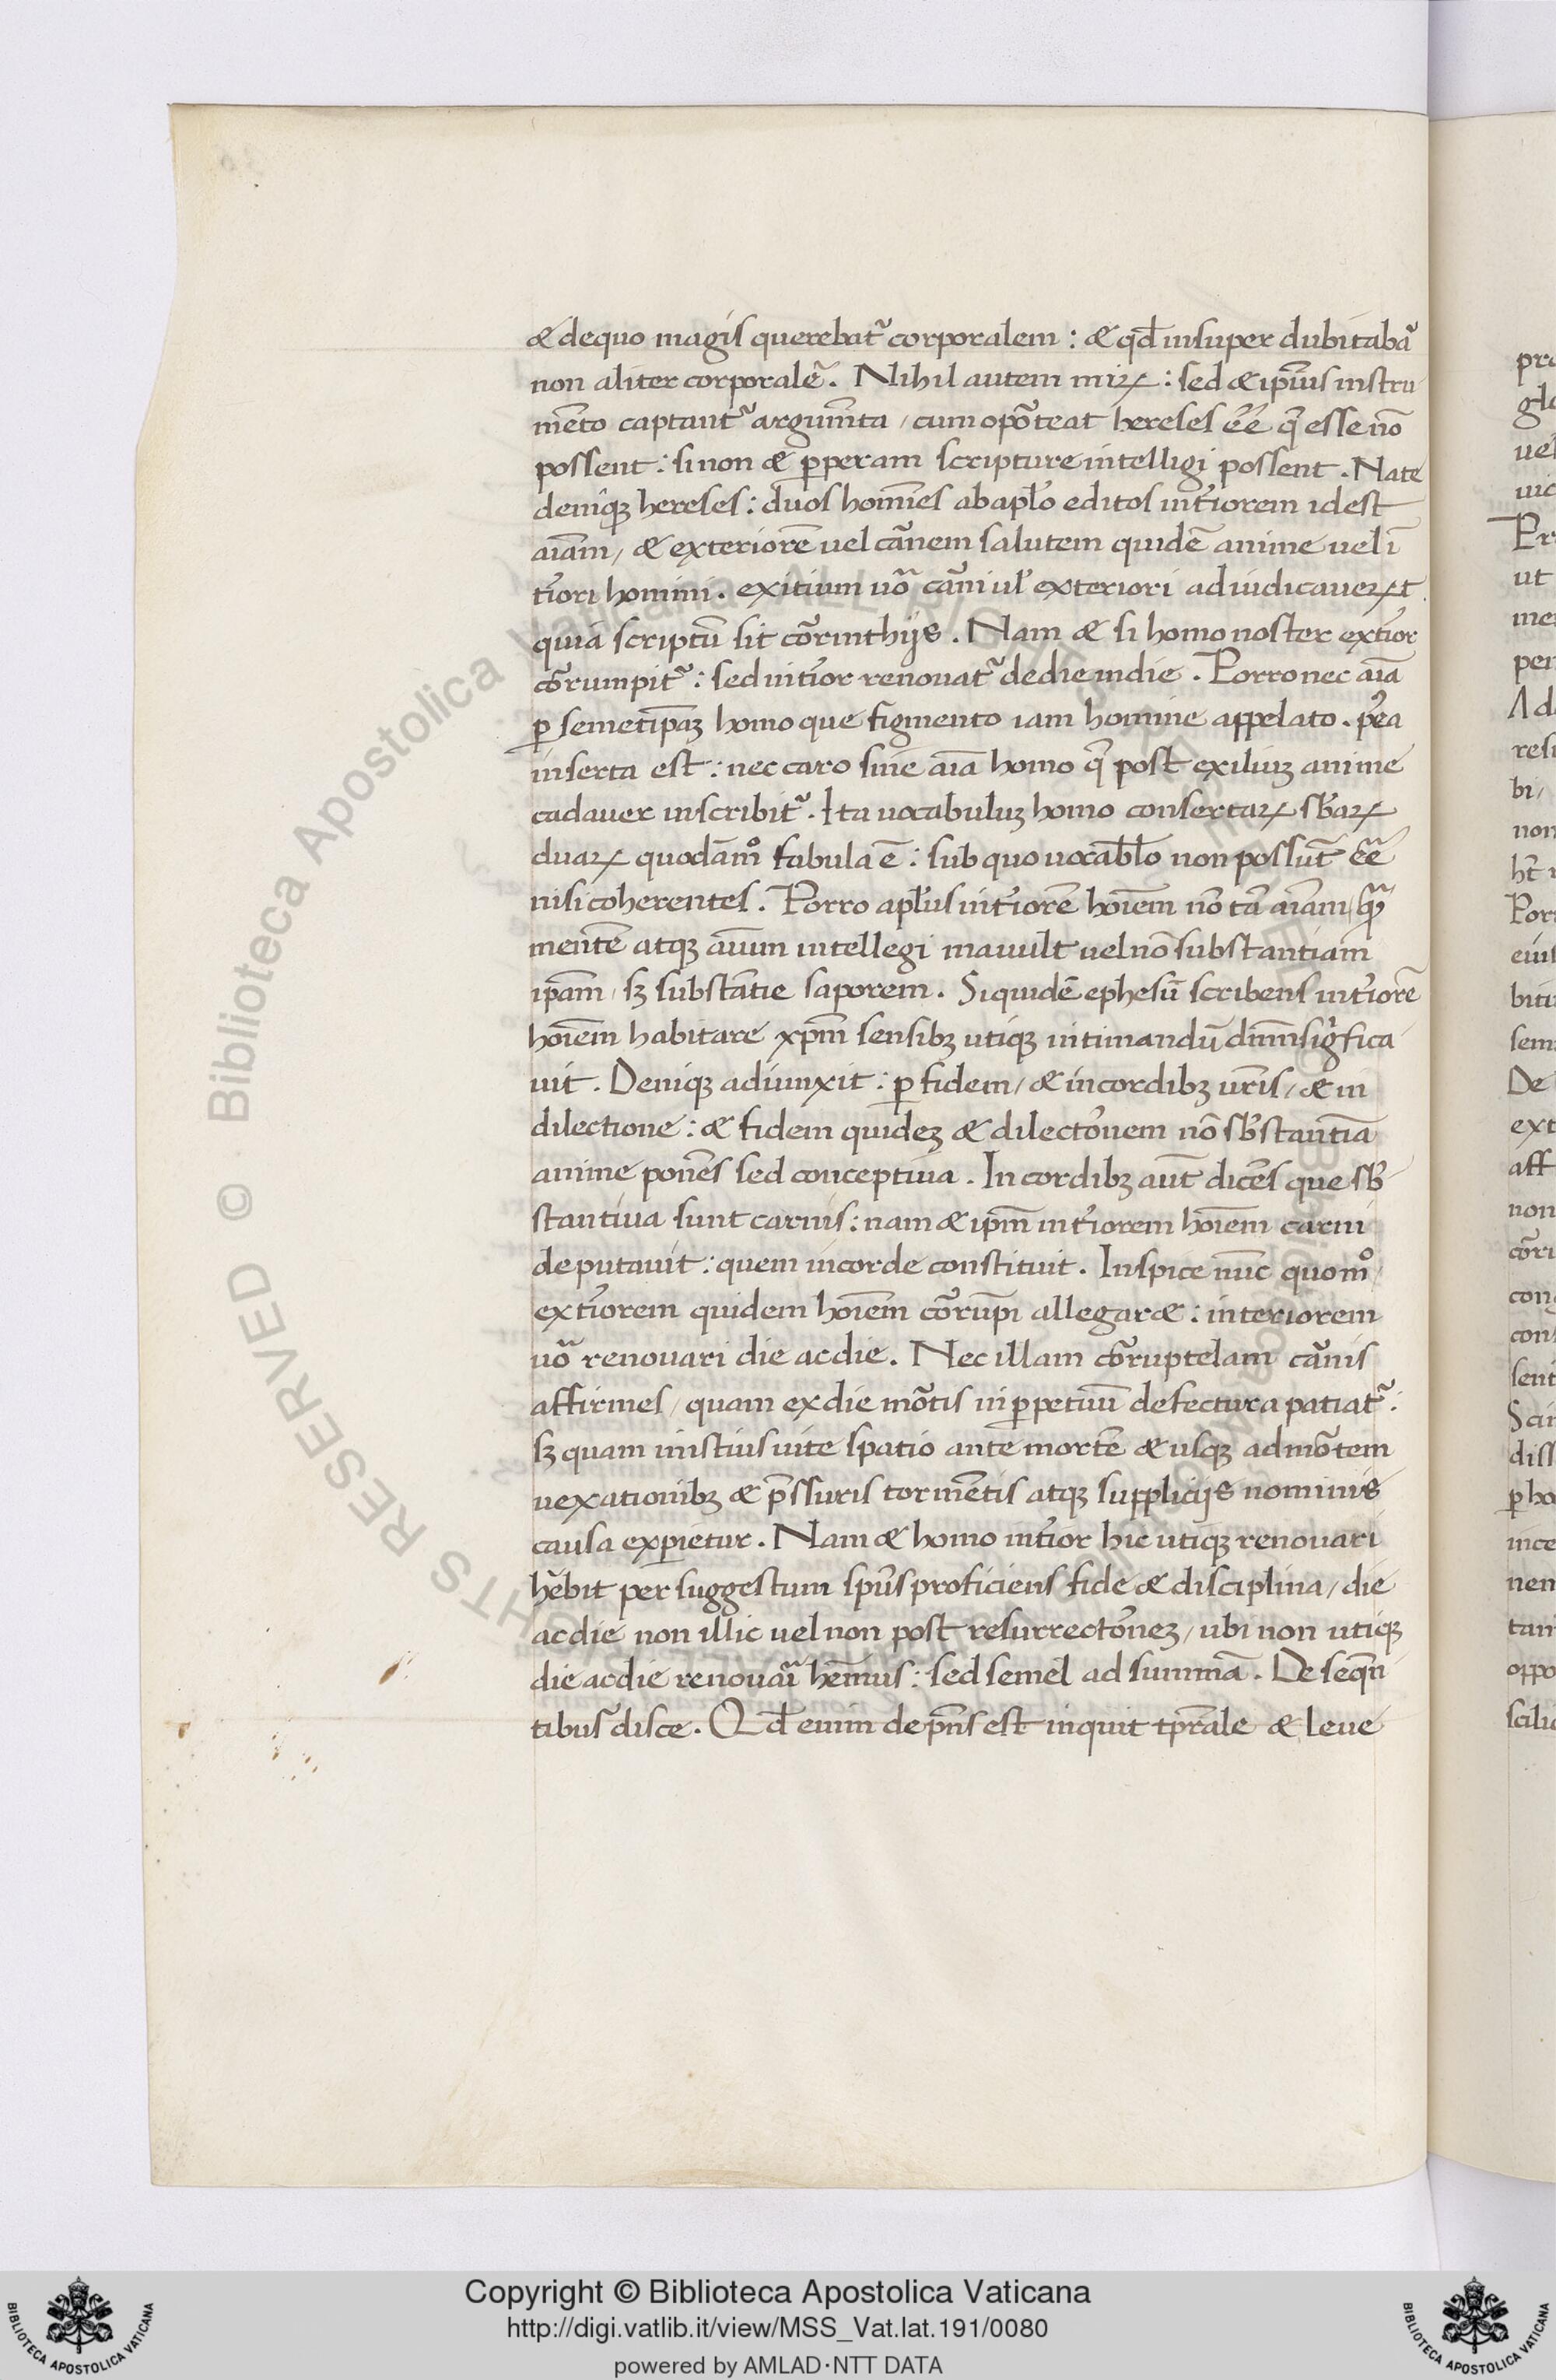 & dequo magis querebat᷑ corporalem : & qd̄ insuper dubitabā
non aliter corporalē. Nihil autem mirꝝ : sed & ip̄ius instru
mēto captant᷑ argum̄ta / cum opōteat hereses ēē q̄ esse nō
possent : si non & ꝑperam scripture intelligi possent . Nate
deniqꝫ hereses : duos homīes ab apl̄o editos int̄iorem idest
aīam / & exteriorē uel cānem salutem quidē anime uel ī
t̄iori homini . exitium uō cāni ul̄ exteriori adiudicauerꝝt
quia scriptū sit cōrinthijs . Nam & si homo noster ext̄ior
cōrumpit᷑ : sed int̄ior renouat᷑ dedie indie . Porro nec aīa
ꝑ semetip̄aꝫ homo que figmento iam homine appelato . p̄ea
inserta est : nec caro sine aīa homo q̄ post exiliuꝫ anime
cadauer inscribit᷑ . Ita uocabuluꝫ homo consertaꝝ sb̄aꝝ
duaꝝ quodam̊ fabula ē : sub quo uocabl̄o non possūt ēē
nisi coherentes . Porro apl̄us int̄iorē hoīem nō tā aīam / qꝫ̄
mentē atqꝫ aīum intellegi mauult uel nō substantiam
ip̄am / sꝫ substātie saporem . Siquidē ephesū scribens int̄iorē
hoīem habitare xp̄m sensibꝫ utiqꝫ intimandū dn̄m sigīfica
uit . Deniqꝫ adiunxit : ꝑ fidem / & in cordibꝫ ur̄is / & in
dilectione : & fidem quideꝫ & dilectōnem nō sb̄stantīa
anime ponēs sed conceptiua . In cordibꝫ aūt dicēs que sb̄
stantiua sunt carnis : nam & ip̄m int̄iorem hoīem carni
deputauit : quem incorde constituit . Inspice nūc quom̊
ext̄iorem quidem hoīem cōrūpi allegar& : interiorem
uō renouari die acdie . Nec illam cōruptelam cānis
affirmes / quam exdie mōtis inꝑpetuū defectura patiat᷑ :
sꝫ quam inistius uite spatio ante mortē & usqꝫ admōtem
uexationibꝫ & p̄ssuris tormētis atqꝫ supplicijs nominis
causa exꝑietur . Nam & homo int̄ior hic utiqꝫ renouari
hēbit per suggestum sp̄us proficiens fide & disciplina / die
acdie non illic uel non post resurrectōneꝫ / ubi non utiqꝫ
die acdie renouāi hēmus : sed semel ad summā . De seq̄n
tibus disce . Qd̄ enim de p̄ns est inquit tp̄rale & leue